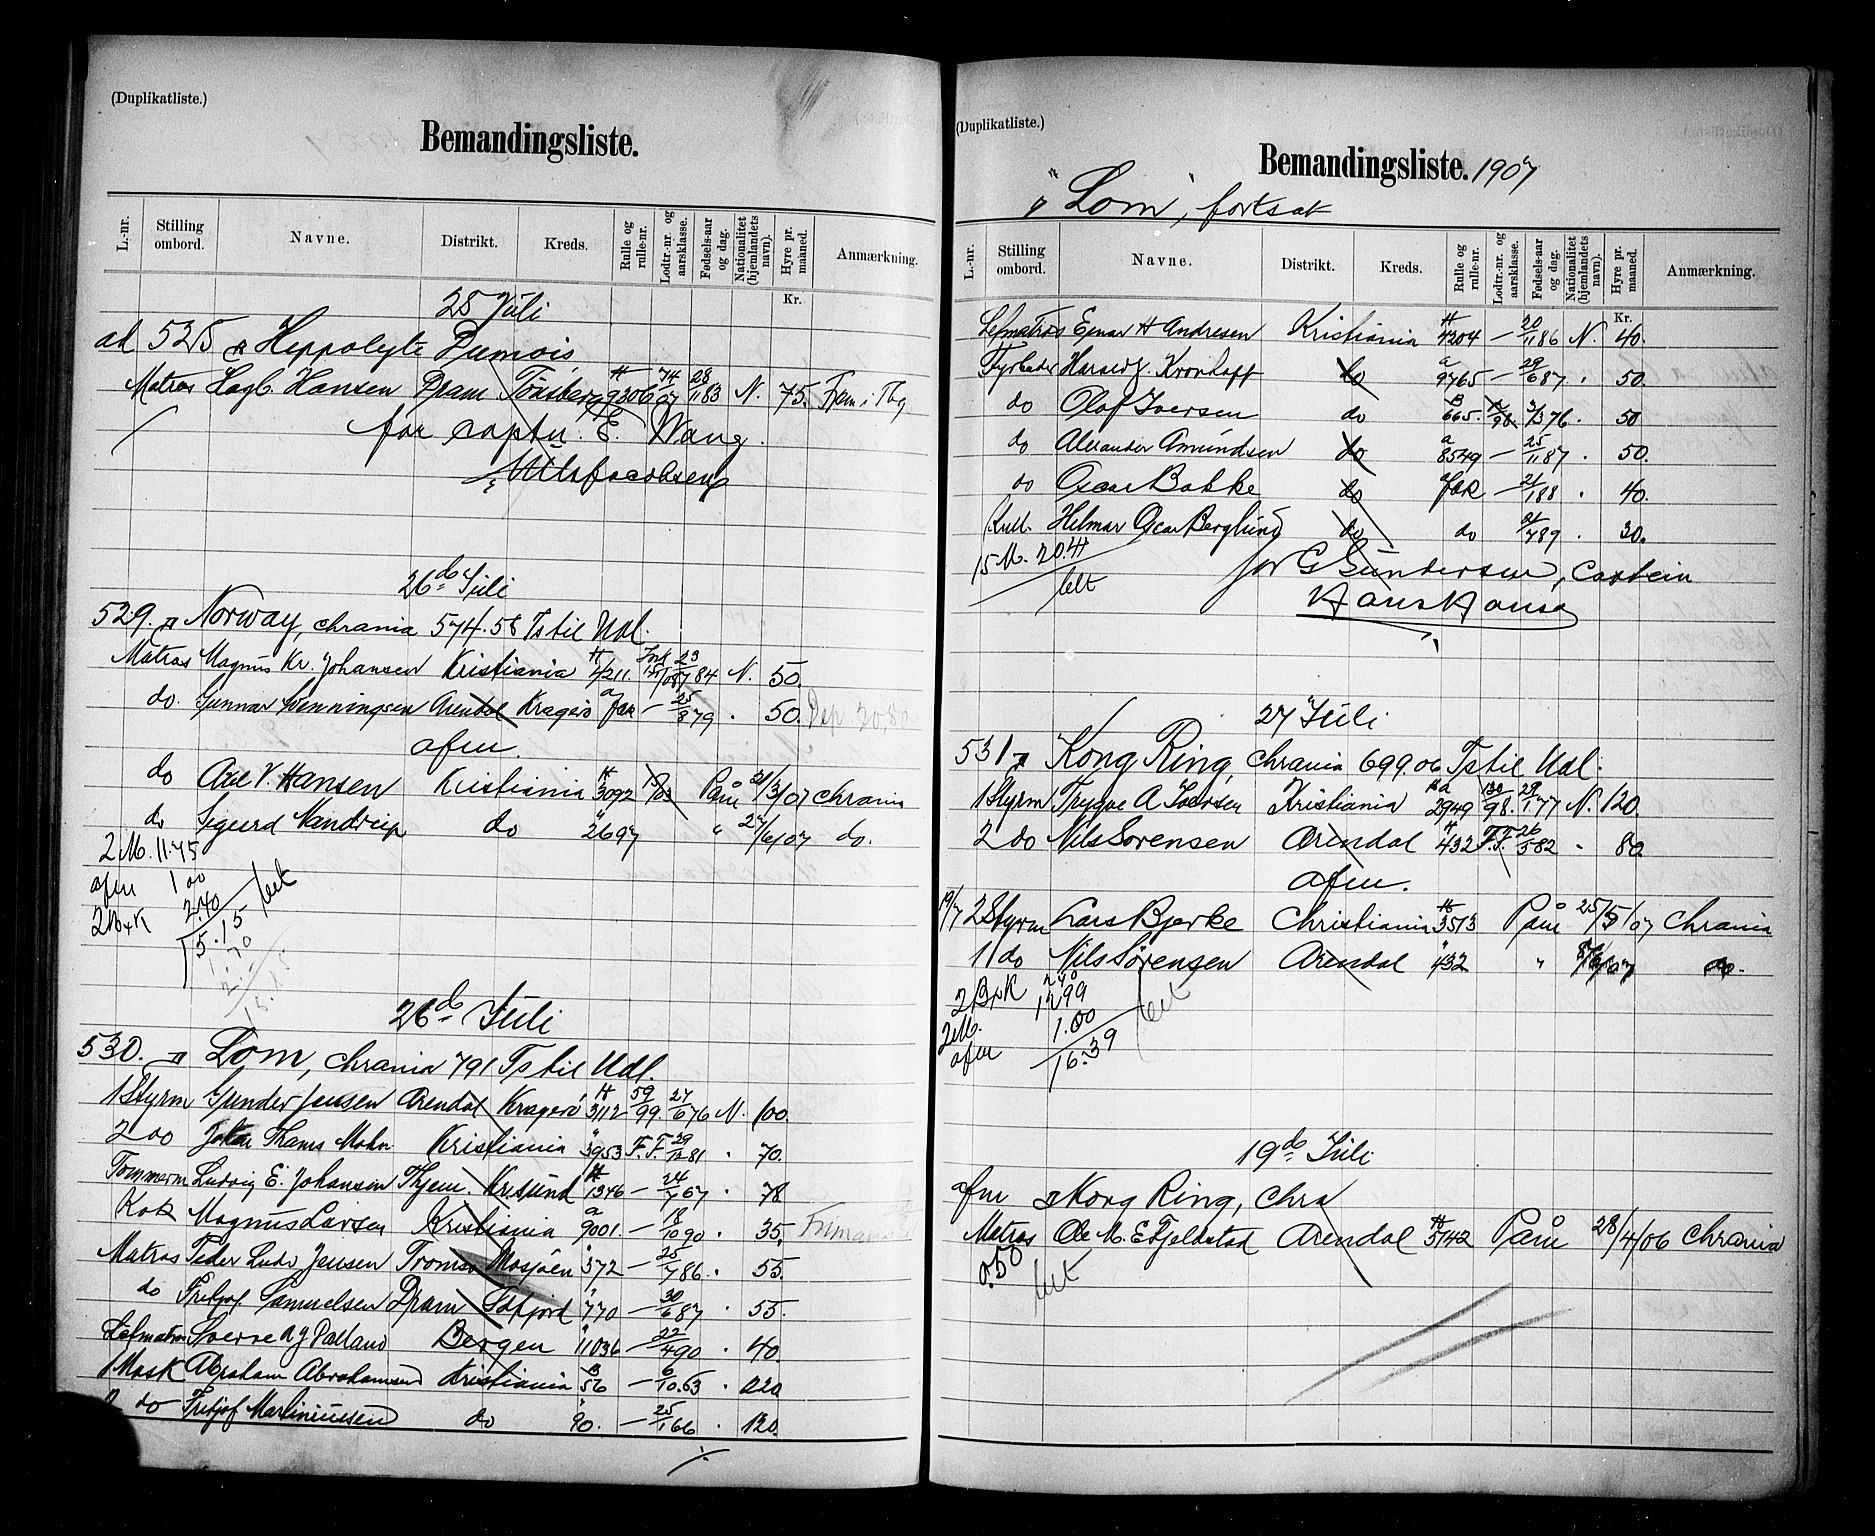 (Duplikatliste.)
Bemandingsliste.
L.-nr. Stilling ombord. Navne. Distrikt. Kreds. Rulle og rulle-nr. Lodtr.-nr. og aarsklasse. Fødsels-aar og dag. Nationalitet (hjemlandets navn). Hyre pr. maaned. Anmærkning.
Kr.
25 Juli
ad 525 Hippolyte Dumois
Matros Hagb. Hansen Dram Tönsberg 9306 74/07 28/11 83 N. 75. Frem i Tbg
for captn. E. Wang.
Olaf Jacobsen
26 do Juli
529. Norway, Chrania 574.58 Ts til Udl.
Matros Magnus Kr. Johansen Kristiania 4211 23/7 84 N. 50.
do. Gunnar Henningsen Arendal Kragerö fak - 25/8 79 . 50.
afm.
do Axel V. Hansen Kristiania 3092 Paam 21/3/07 Chrania
do Sigurd Nandrup do 2697 " 27/6/07 do.
2 M. 11.75
afm 1 00
2 B+K 2.40
15.15
26 do Juli
530. Lom, Chrania 791 Ts til Udl.
1 Styrm Gunder Jensen Arendal Kragerö 3112 59/99. 27/6 76 N. 100.
2 do Johan Thams Mohn Kristiania 3953 F.F. 29/12 81 . 70.
Tømmerm Ludvig E. Johansen Thjem. Krisund 1346 - 24/7 67 . 78
Kok Magnus Larsen Kristiania 9001. - 18/10 90 . 35.
Matros Peder Ludv Jensen Tromsø Mosjöen 372 - 25/7 86 . 55.
do Fritjof Samuelsen Dram Sdfjord 770 - 30/6 87 . 55.
Letmatros Sverre A J Palland Bergen 11036 - 22/4 90 . 40.
1 Mask Abraham Abrahamsen Kristiania 56 - 6/10.63 . 220
2 do Fritjof Martiniussen do 90. - 25/1 66 . 120.
./.
(Duplikatliste.)
Bemandingsliste. 1907
"Lom", fortsat
L.-nr. Stilling ombord. Navne. Distrikt. Kreds. Rulle og rulle-nr. Lodtr.-nr. og aarsklasse. Fødsels-aar og dag. Nationalitet (hjemlandets navn). Hyre pr. maaned. Anmærkning.
Kr.
Letmatros Ejnar H Andresen Kristiania 4204 - 20/11 86 N. 40.
Fyrbøder Harald J. Kronhoff do 9765 - 29/6 87 . 50.
do Olaf Iversen do 665. 3/3 76 . 50
do Alexander Amundsen do 8549 - 25/11 87 . 50.
do Oscar Bakke do fak - 21/1 88 . 40.
Kull. Hilmar Oscar Berglund do do 21/4 89 . 30.
15 M. 20.41
for G Gundersen, Captein
Hans Hansen
27 Juli
531 Kong Ring, Chrania 699.06 Ts til Udl.
1 Styrm Trygve A Iversen Kristiania 2949 130/98. 29/1 77 N. 120.
2 do Nils Sørensen Arendal 432 F.F. 26/5 82 . 80.
afm.
19/7 2 Styrm Lars Bjerke Christiania 3513 Paam 25/5/07 Chrania
1 do Nils Sørensen Arendal 432 " do.
2 B+K 2 40
2 M. 12 99
afm 1.00
16.39
19 do Juli
afm Kong Ring, Chra
Matros Ole M. E Fjeldstad Arendal 5142 Paam 28/4/06 Chrania
0.50